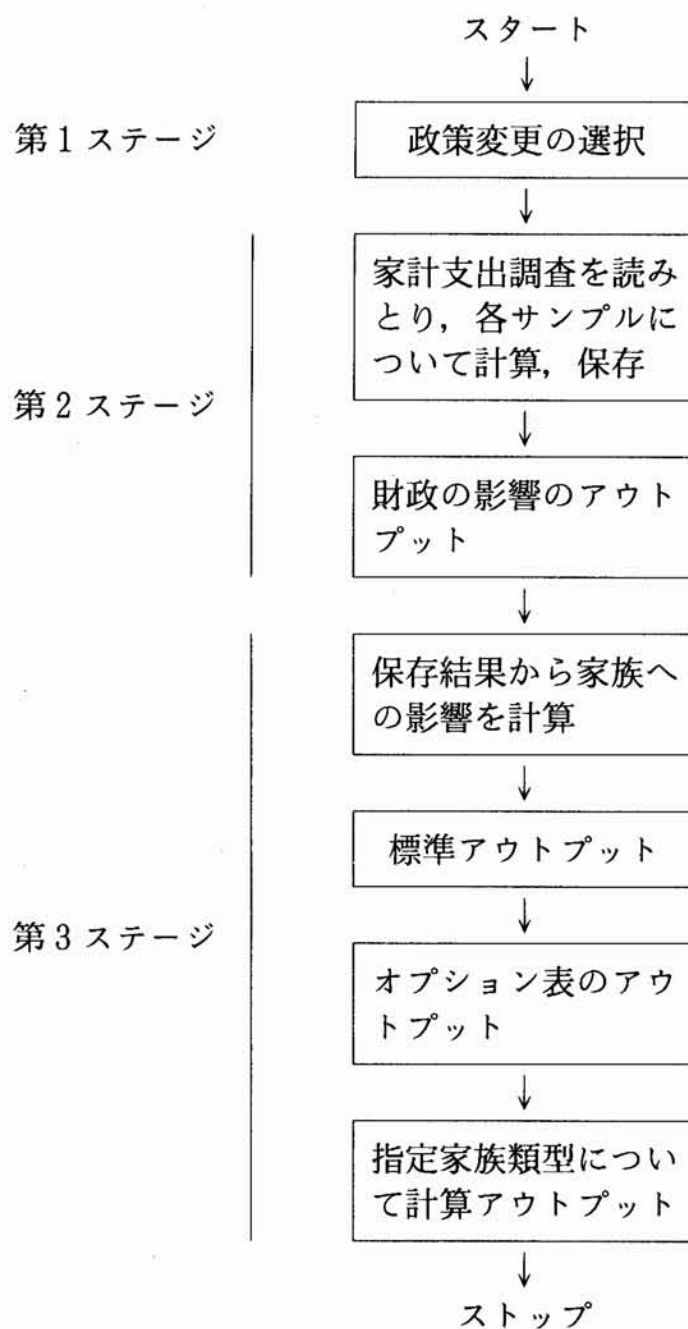 スタート
第1ステージ
政策変更の選択
家計支出調査を読み
とり，各サンプルに
ついて計算，保存
第2ステージ
財政の影響のアウト
プット
保存結果から家族へ
の影響を計算
標準アウトプット
第3ステージ
オプション表のアウ
トプット
指定家族類型につい
て計算アウトプット
ストップ